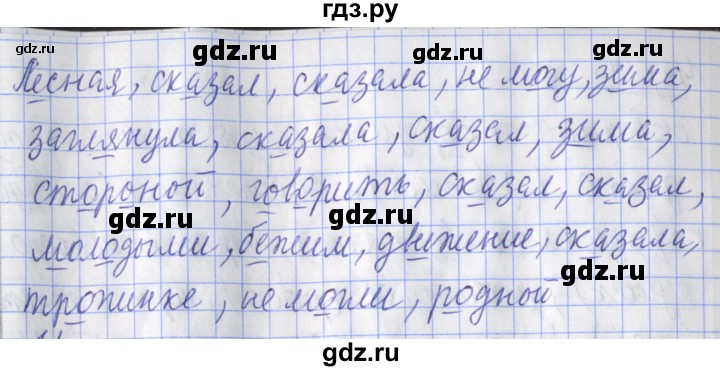 гдз.ру
Лесная, сказал, сказала, не могу, зима,
заглянула, сказала, сказал, зима,
стороной, говорить, сказал, сказал,
молодыми, бежим, движение, сказала,
тропинке, не могли, родной
gdz.ru
gdz.ru
gdz.ru
gdz.ru
gdz.ru
gdz.ru
gdz.ru
gdz.ru
gdz.ru
gdz.ru